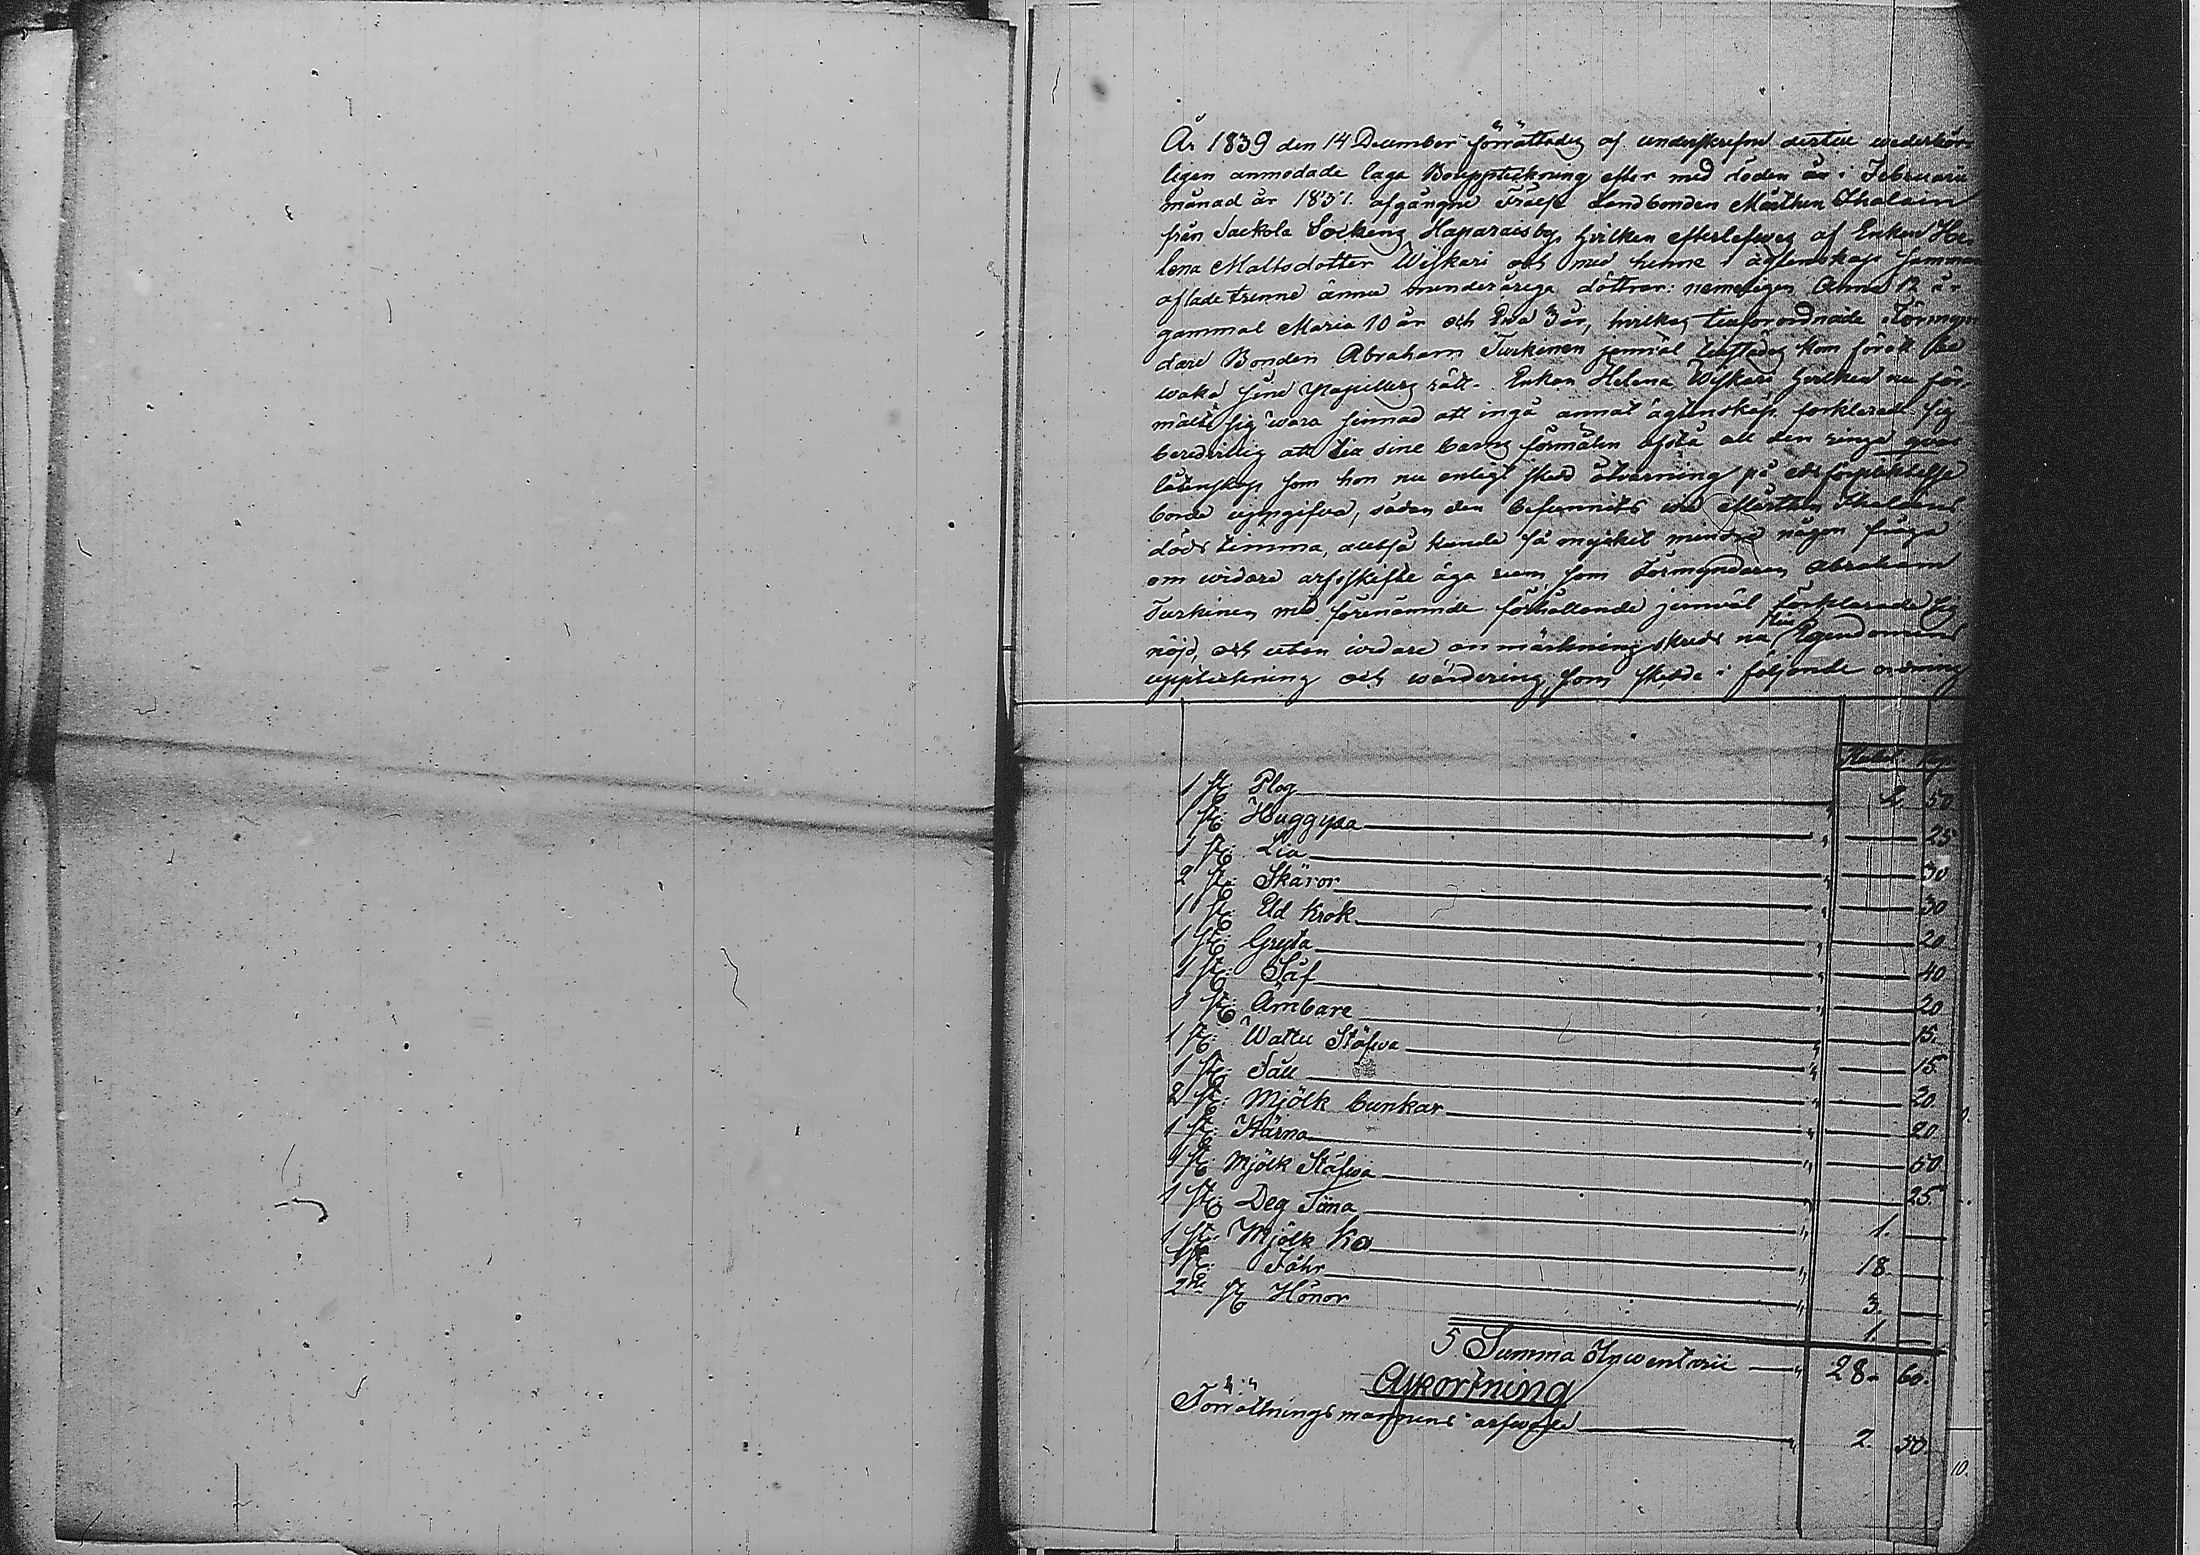 År 1839 den 14 December förrättades af underskrefne dertill wederbör-
ligen anmodade laga Bouppteckning efter med döden i Februarii
månad år 1837. afgångne Fräls Landbonden Mårthen Ihalain
från Sackola Sockens Haparais by, hvilken efterlefwes af Enkan He-
lena Mattsdotter Wiskari och med henne i ägtenskap samman
aflade trenne ännu minderåriga döttrar: nemligen Anna 12 år
gammal Maria 10 år och Ewa 3 år, hvilkas tillförordnade Förmyn
dare Bonden Abraham Turkinen jemväl tillstädes kom för att be
waka sine Pupillers rätt. Enkan Helena Wiskari hvilken nu för-
mälte sig wara sinnad att ingå annat ägtenskap, förklarade sig
beredvillig att till sine barns förmålen afstå all den ringa qvar
låtenskap som hon nu enligt skedd åtvarning på edsförpliktelse
borde uppgifva, sådan den befunnits wid Mårthen Ihalains
döds timma, alltså kunde så mycket mindre någon fråga
om widare arfsskifte äga rum, som Förmyndaren Abraham
Turkinen med förenämnde förhållande jemväl förklarade sig
nöjd, och utan widare anmärkning skreds nu till Egendomens
uppteckning och wärdering, som skedde i följande ordning
Rubel Kop
1 st: Plog " 2. 50
1 st: Huggyxa " — 25
1 st: Lia " — 30
2 st: Skäror " — 30
1 st: Eld krok " — 20
1 st: Gryta " — 40
1 st: Såf " — 20
1 st: Ämbare " — 15.
1 st: Wattu Stäfwa " — 15
1 st: Såll " — 20
2 st: Mjölk bunkar " — 20
1 st: Kärna " — 50
1 st: Mjölk Stäfwa " — 25
1 st: Deg Tina " 1. —
1 st: Mjölk Ko " 18. —
1 st: Fåhr " 3. —
2ne st Hönor 1 —
S Summa Inwentarii — " 28. 60.
Afkortning
Förrättningsmannens arfwode " 2. 50
10.